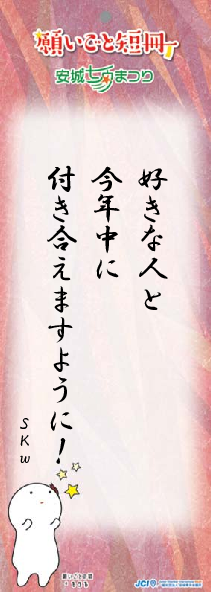 願いごと短冊
安城七夕まつり
好きな人と
今年中に
付き合えますように!
SKW
JCI